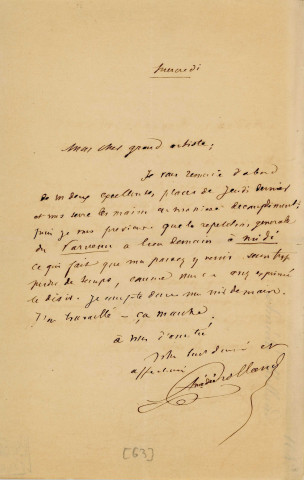 Mercredi
Mon cher grand artiste,
Je vous remercie d'abord
de vos deux excellentes places de Jeudi dernier
et vous serre les mains en manière de compliment;
puis je vous préviens que la répétition générale
du Parvenu a lieu demain à midi
ce qui fait que vous pouvez y venir sans trop
perdre de temps, comme vous en avez exprimé
le désir. Je compte donc sur
J'ai travaillé — ça marche.
à vous d'amitié
Votre tout dévoué et
affectueux
Amédée Rolland
[63]